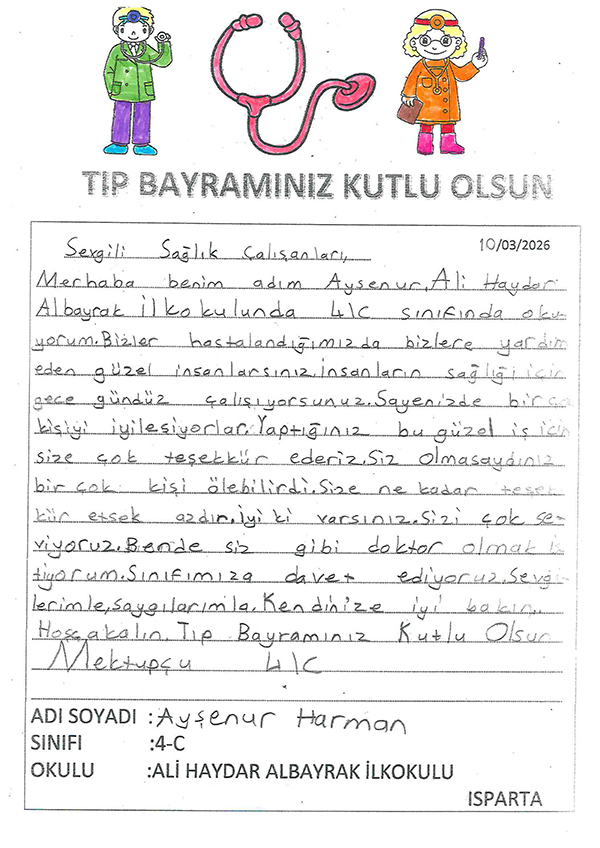 TIP BAYRAMINIZ KUTLU OLSUN
10/03/2026
Sevgili Sağlık Çalışanları,
Merhaba benim adım Ayşenur, Ali Haydar
Albayrak İlkokulunda 4/C sınıfında oku-
yorum. Bizler hastalandığımızda bizlere yardım
eden güzel insanlarsınız. İnsanların sağlığı için
gece gündüz çalışıyorsunuz. Sayenizde bir ço
kişiyi iyileşiyorlar. Yaptığınız bu güzel iş için
size çok teşekkür ederiz. Siz olmasaydınız
bir çok kişi ölebilirdi. Size ne kadar teşek-
kür etsek azdır. İyi ki varsınız. Sizi çok se-
viyoruz. Bende siz gibi doktor olmak is
tiyorum. Sınıfımıza davet ediyoruz. Sevgi-
lerimle, saygılarımla. Kendinize iyi bakın..
Hoşçakalın. Tıp Bayramınız Kutlu Olsun
Mektupçu 4/C
ADI SOYADI :Ayşenur Harman
SINIFI :4-C
OKULU :ALİ HAYDAR ALBAYRAK İLKOKULU
ISPARTA